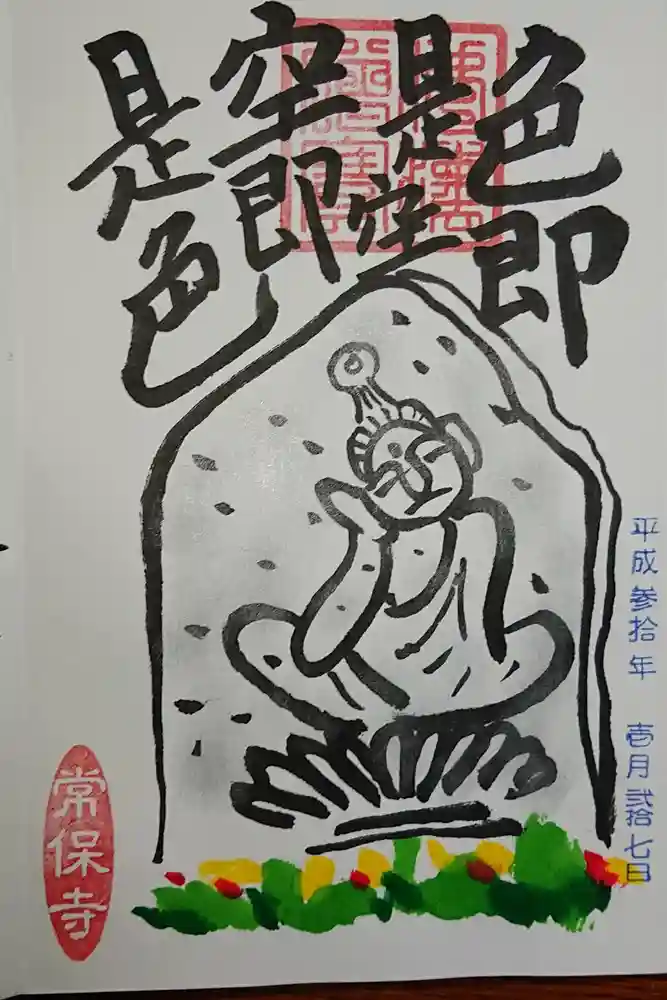 色即
是空
空即
是色
平成参拾年 壱月弐拾七日
常保寺